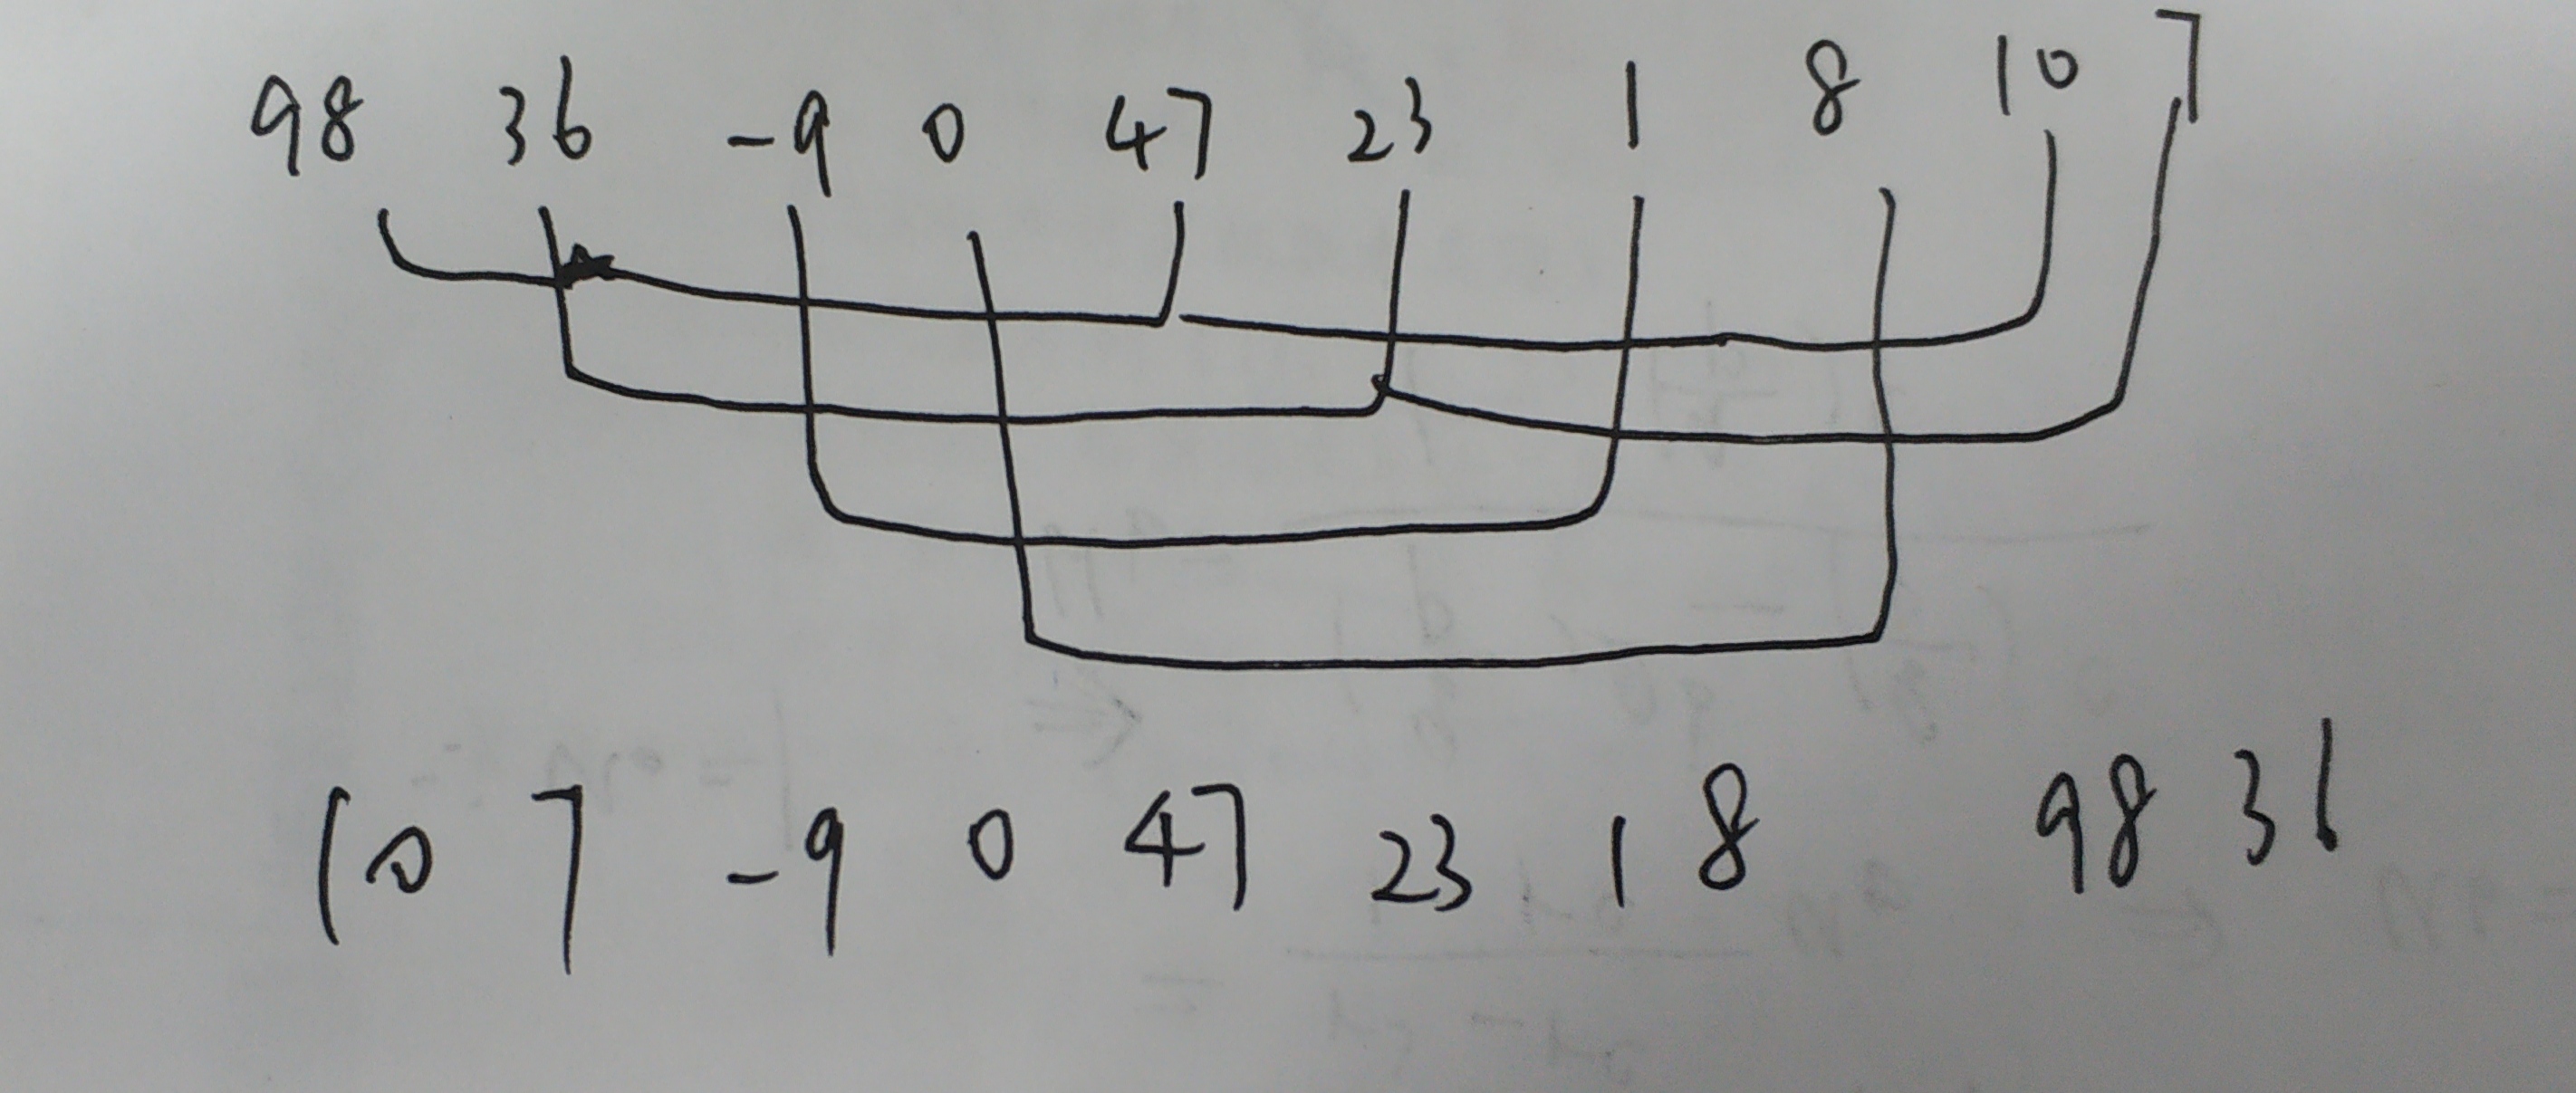 98 36 -9 0 47 23 1 8 10 7
10 7 -9 0 47 23 1 8 98 36